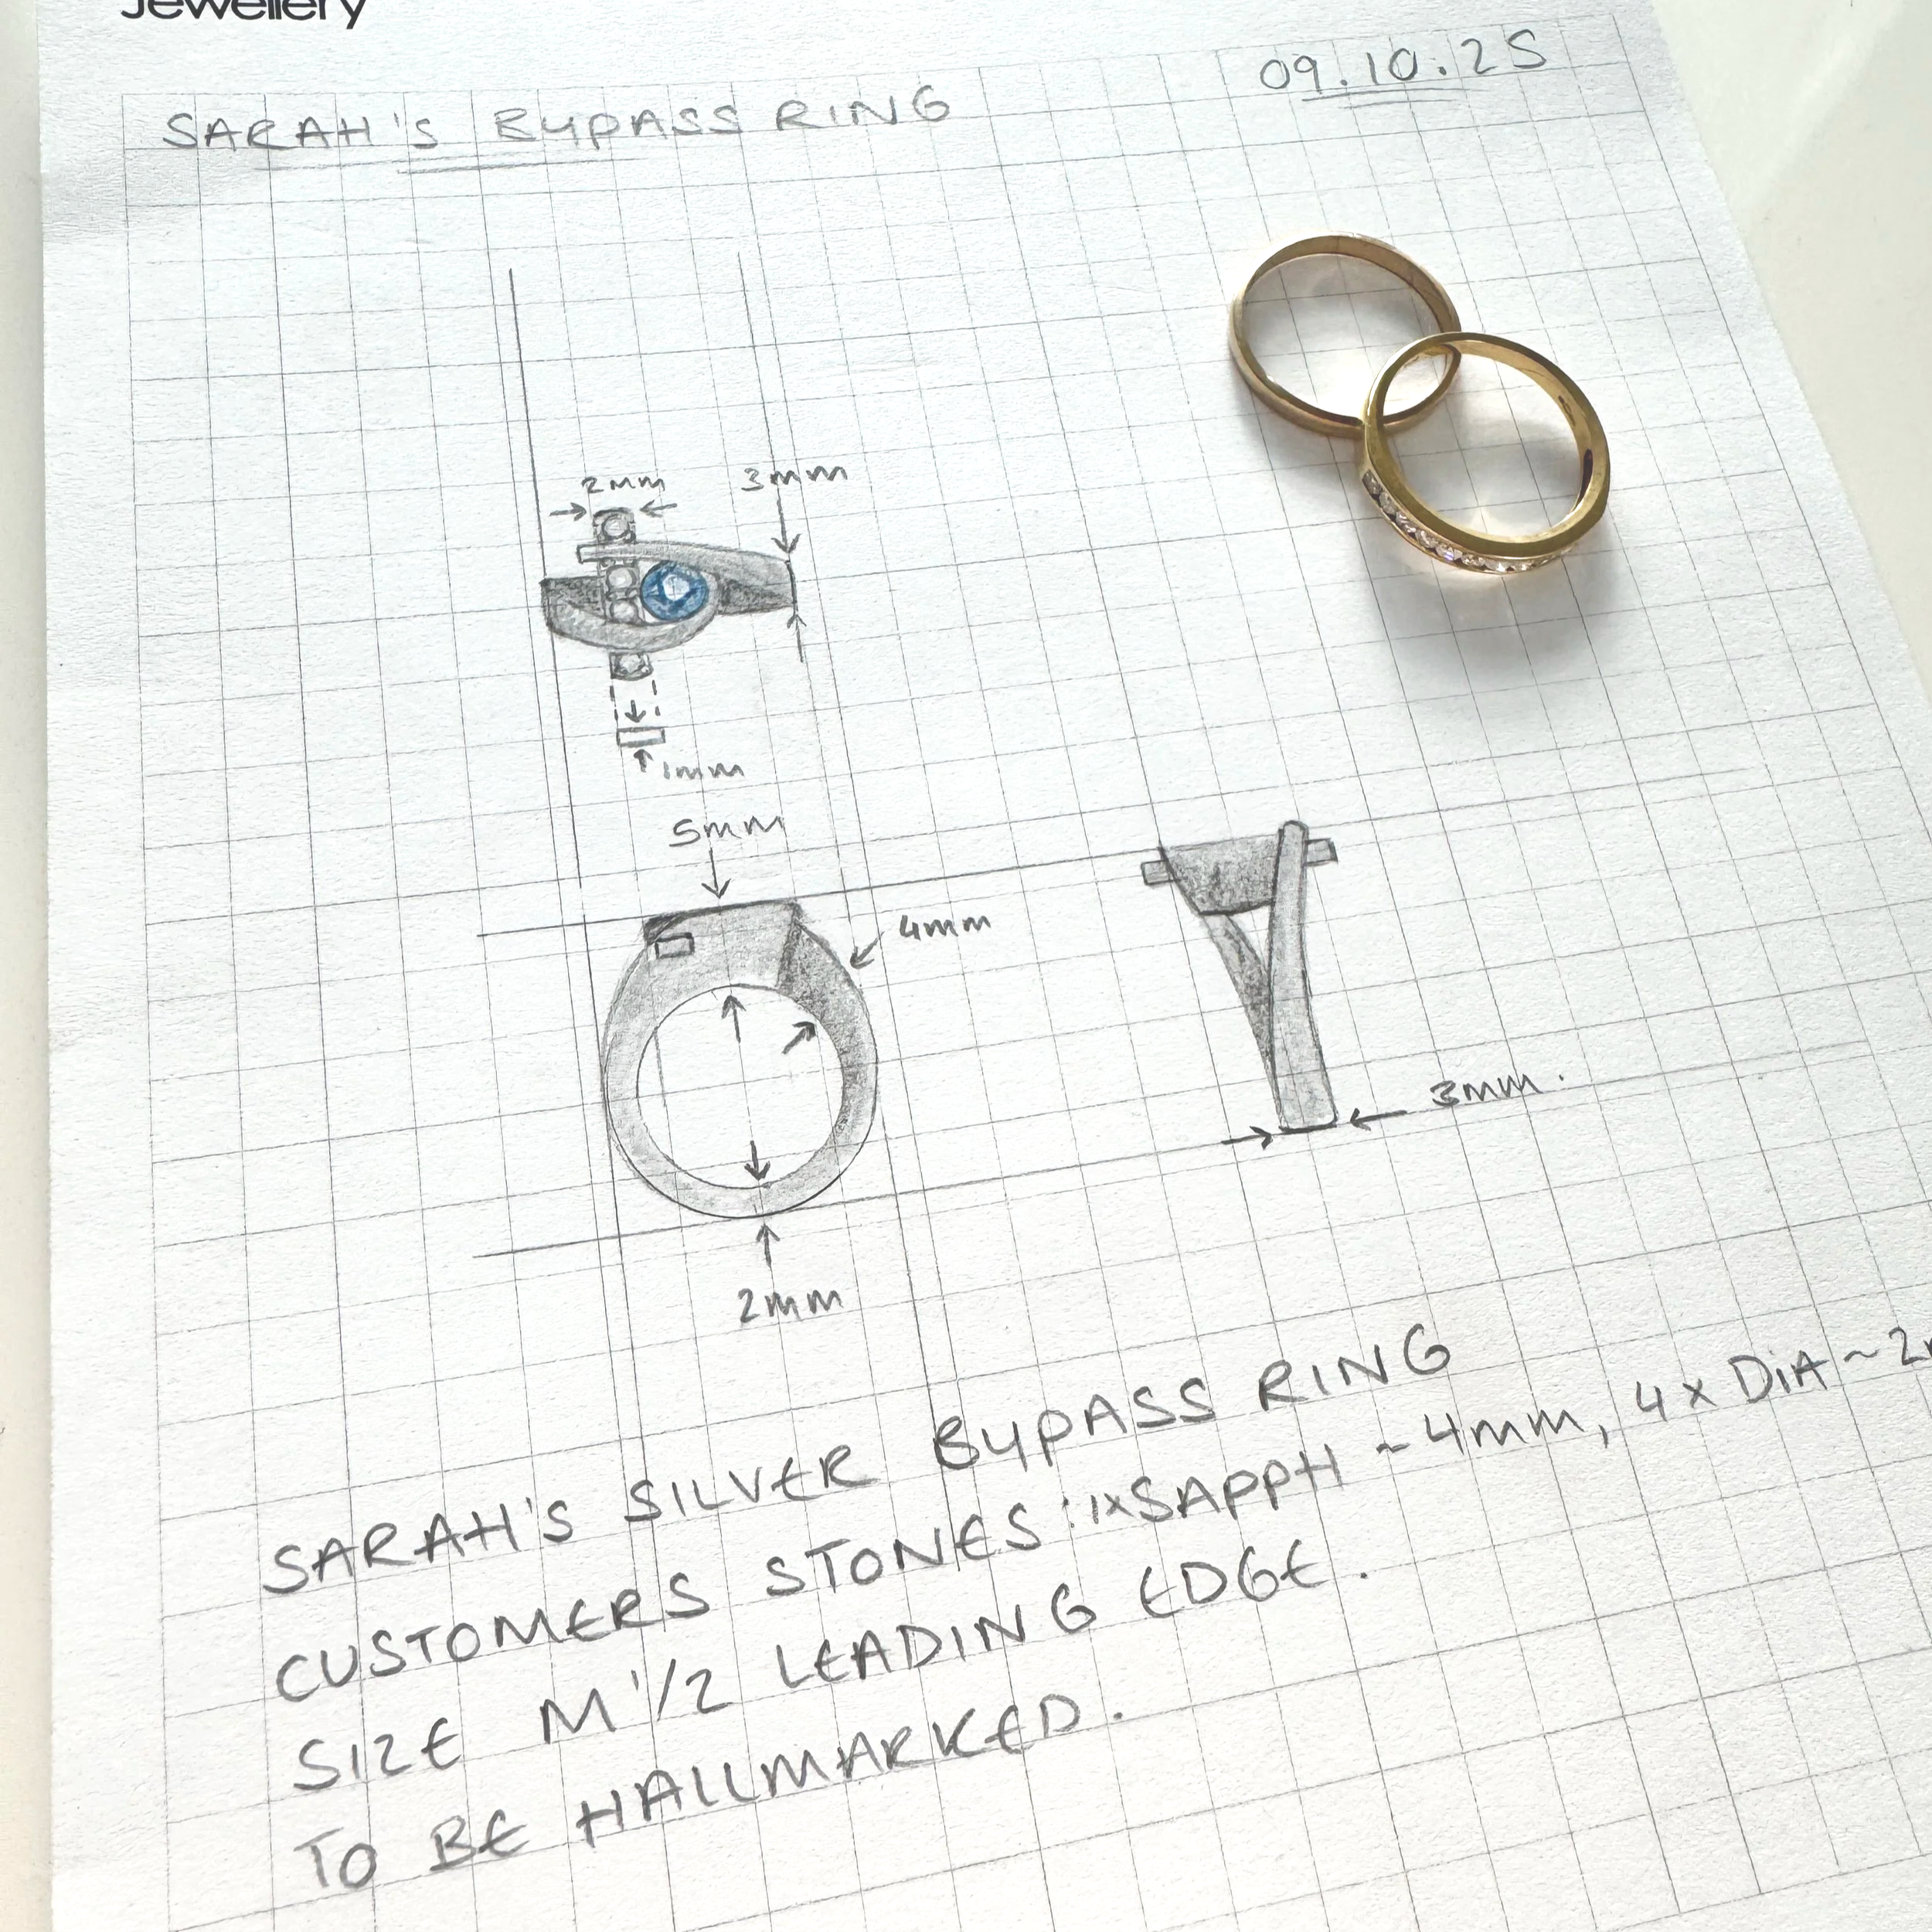 Jewellery
09.10.25
SARAH'S BYPASS RING
2mm
3mm
1mm
5mm
4mm
3mm.
2mm
SARAH'S SILVER BYPASS RING
CUSTOMERS STONES: 1xSAPPH ~4mm, 4x DiA ~2
SIZE M 1/2 LEADING EDGE.
TO BE HALLMARKED.